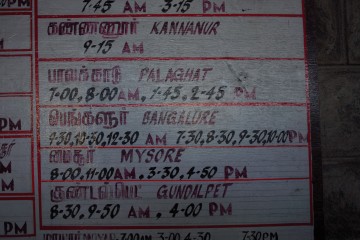 7-45 AM 3-15 PM
கண்ணனூர் KANNANUR
9-15 AM
PM
பாலக்காடு PALAGHAT
7-00, 8-00 AM, 1-45, 2-45 PM
பெங்களூர் BANGALORE
9-30,10-30,12-30 AM 7-30,8-30,9-30,10-00 PM
PM
மைசூர் MYSORE
8-00, 11-00 AM. 3-30, 4-50 PM
PM
குண்டல்பெட் GUNDALPET
8-30, 9-50 AM . 4-00 PM
PM
7-00 AM 3-00 4-30 7-30 PM